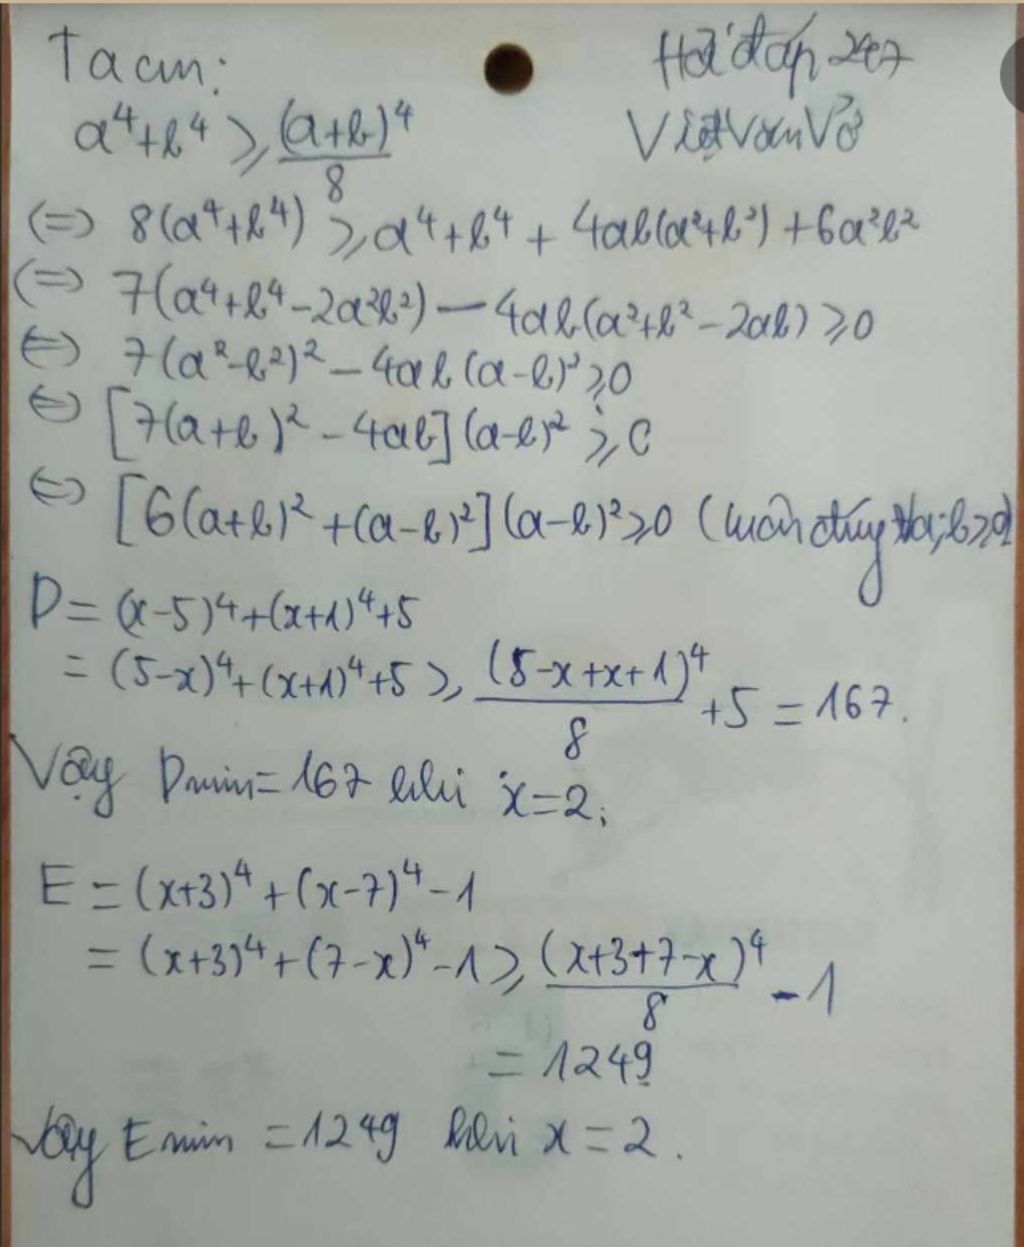 Ta cm:
Hỏi đáp 247
Việt Văn Võ
a⁴+b⁴ ≥ (a+b)⁴/8
(=) 8(a⁴+b⁴) ≥ a⁴+b⁴ + 4ab(a²+b²) + 6a²b²
(=) 7(a⁴+b⁴-2a²b²) - 4ab(a²+b²-2ab) ≥ 0
(=) 7(a²-b²)² - 4ab(a-b)² ≥ 0
(=) [7(a+b)² - 4ab](a-b)² ≥ 0
(=) [6(a+b)² + (a-b)²](a-b)² ≥ 0 (luôn đúng ∀a;b≥0)
D = (x-5)⁴+(x+1)⁴+5
= (5-x)⁴+(x+1)⁴+5 ≥ (5-x+x+1)⁴/8 +5 = 167.
Vậy Dmin = 167 khi x=2;
E = (x+3)⁴ + (x-7)⁴ - 1
= (x+3)⁴ + (7-x)⁴ - 1 ≥ (x+3+7-x)⁴/8 - 1
= 1249
Vậy Emin = 1249 khi x = 2.